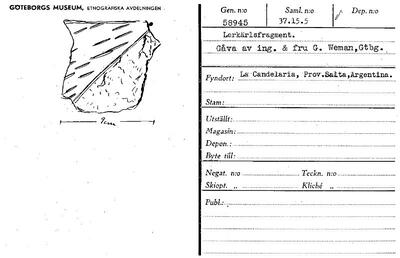 GÖTEBORGS MUSEUM, ETNOGRAFISKA AVDELNINGEN
9cm
Gen. n:o Saml. n:o Dep. n:o
58945 37.15.5
Lerkärlsfragment.
Gåva av ing. & fru G. Weman,Gtbg.
Fyndort: La Candelaria, Prov.Salta,Argentina.
Stam:
Utställt:
Magasin:
Depon.:
Byte till:
Negat. n:o Teckn. n:o
Skiopt. „ Kliché „
Publ.: